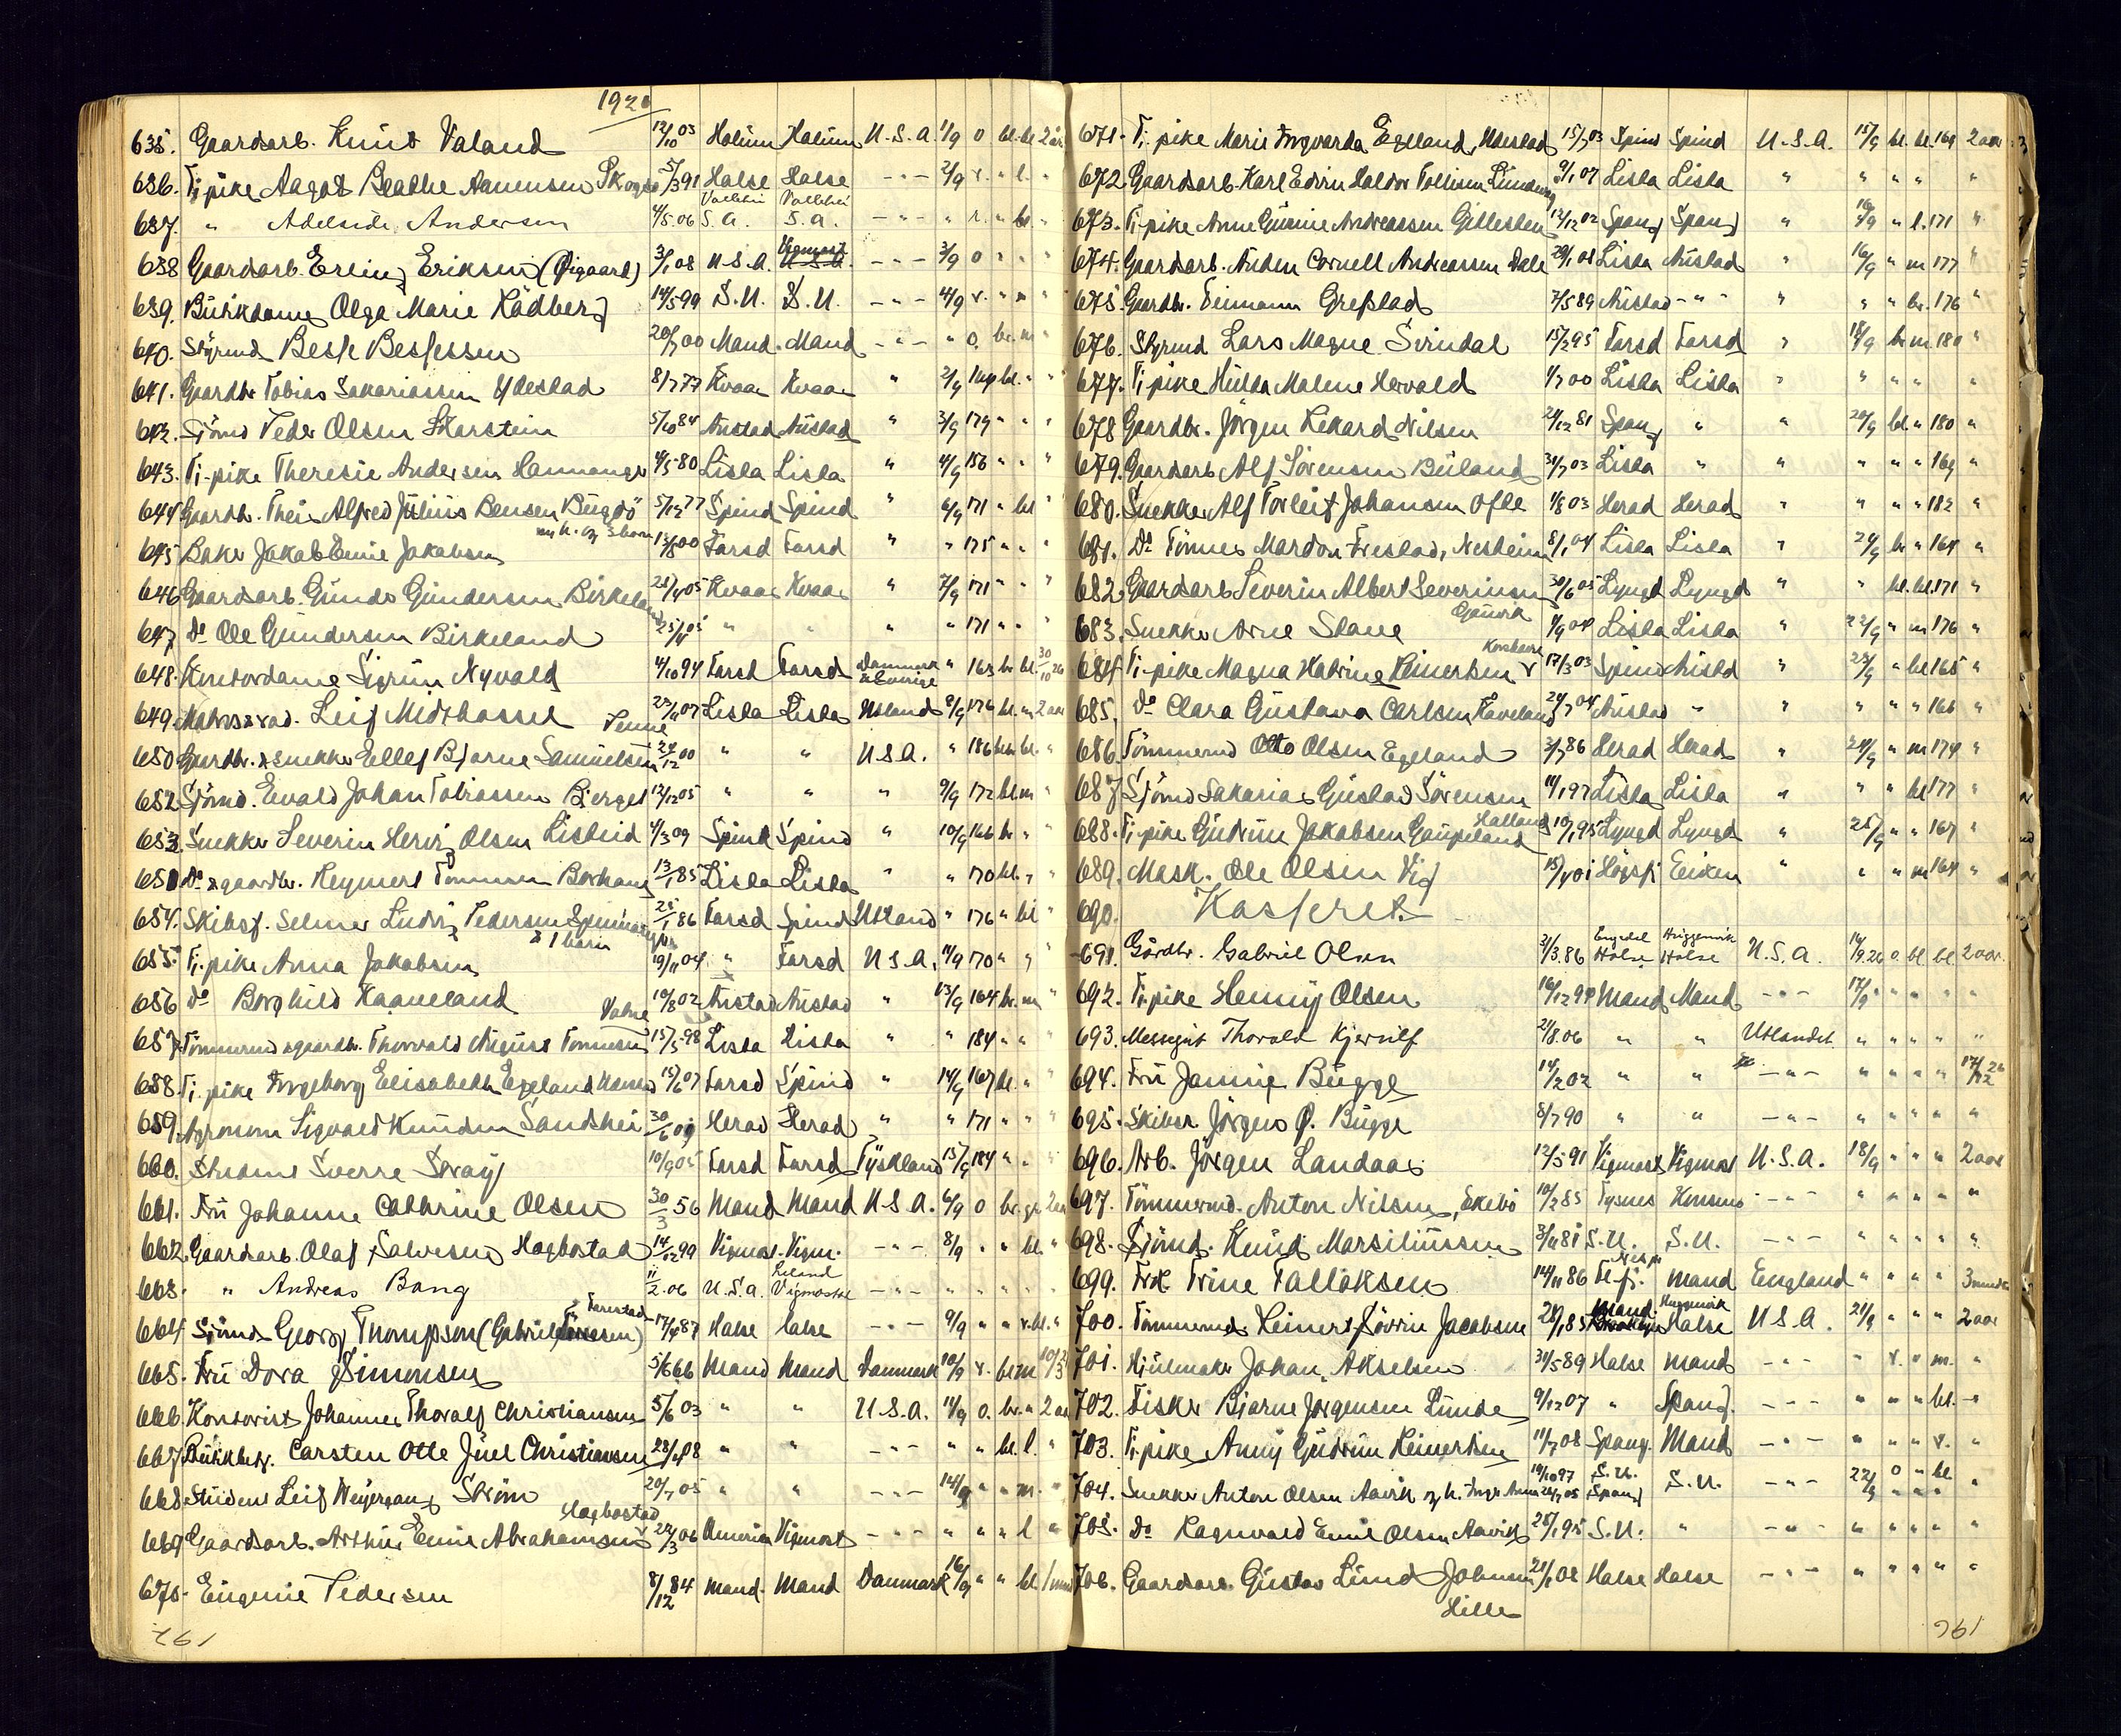 192
635. Gaardsarb. Knut Valand 12/10 03 Halum Halum U.S.A. 1/9 0 bl. bl. 2 aar
636. Tj.pike Aagot Beathe Aanensen Skogsø 5/3 91 Halse Halse -"- 2/9 r. " l. "
637. " Adelheide Andersen 4/5.06 S.A. S.A. -"- " r. " bl. "
638 Gaardsarb. Erling Eriksen (Øigaard) 3/1 08 U.S.A. Vigmost -"- 3/9 0 " " "
639. Butikdame Olga Marie Rödberg 14/5 99 S.U. S.U. -"- 4/9 r. " m "
640. Styrmd Besse Bessesen 20/7 00 Mand. Mand -"- " 0. br. m "
641. Gaardbr. Tobias Sakariassen Ydestad 8/7 77 Kvaas Kvaas " 2/9 169 bl. " "
642. Sjömd Peder Olsen Skarstein 5/10 84 Austad Austad " 3/9 179 " " "
643. Tj-pike Theresie Andersen Hannanger 4/5 80 Lista Lista " 4/9 156 " " "
644 Gaardbr. Theis Alfred Julius Bensen Bugdö 5/12 77 Spind Spind " 6/9 171 " bl "
645 Baker Jakob Emil Jakobsen m h. og 3 barn 13/8 00 Farsd Farsd " " 175 " " "
646 Gaardsarb. Gundo Gundersen Birkeland 28/4 05 Kvaas Kvaas " 7/9 171 " " "
647, do Ole Gundersen Birkeland 25/11 05 " " " " 171 " "
648. Kontordame Sigrun Nyvold 4/10 94 Farsd Farsd Danmark & Sverige " 163 br. bl. 30/10 26
649. Matros & rad. Leif Midthassel 23/11 07 Lista Lista Utland 8/9 176 bl. m 2 aar
650 Gardbr. & snekker Ellef Bjarne Samuelsen Penne 24/12 00 " " U.S.A. " 186 br. bl. "
652 Sjömd. Evald Johan Tobiassen Bjerget 12/12 05 " " " 9/9 172 bl. m "
653 Snekker Severin Hervig Olsen Listeid 4/3 09 Spind Spind " 10/9 166 br " "
651 do & gaardbr. Reymert Tommesen Borhaug 13/1 85 Lista Lista " " 170 bl. " "
654. Skibsf. Selmer Ludvig Pedersen 25/1 86 Farsd Spind Utland " 176 " bl "
655. Tj. pike Anna Jakobsen & 1 barn 19/11 04 " Farsd U S A. 11/9 170 " " "
656 do Borghild Haaneland 10/8 02 Austad Austad " 13/9 164 br. m "
657 Tömmermd & gaardbr. Thorvald August Tönnesen Vatne 15/5 98 Lista Lista " " 184 " " "
658. Tj. pike Ingeborg Elisabeth Egeland 15/6 07 Farsd Spind " 14/9 167 bl. " "
659. Agronom Sigvald Knudsen Sandshei 30/6 09 Herad Herad " " 171 " " "
660. Student Sverre Svaij 10/9 05 Farsd Farsd Tyskland 15/9 184 " " "
661. Fru Johanne Cathrine Olsen 30/3 56 Mand Mand U S A. 6/9 0 br. gr. 2 aar
662. Gaardsarb. Olaf Salvesen Hogbostad 14/12 99 Vigmost. Vigm. -"- 8/9 " " bl. "
663. " Andreas Bang 11/2.06 U.S.A. Leland Vigmostad -"- " " " " "
664 Sjömd Georg Thompson (Gabriel ) Farestad 17/4 87 Halse Halse -"- 9/9 " " bl. "
665. Fru Dora Simonsen 5/6 66 Mand Mand Danmark 10/9 r. br. m 10/3
666. Kontorist Johannes Thoralf Christiansen 5/6 03 " " U.S.A. 11/9 0. br. " 2 aar
667. Butikbetj. Carsten Otto Juel Christiansen 28/4 08 " " -"- " " bl. l. "
668 Student Leif Weyergang Ström 20/7 05 " " -"- 14/9 " " m. "
669 Gaardsarb. Arthur Emil Abrahamsen Hogbostad 22/3 06 America Vigmost -"- " " " l "
670. Eugenie Pedersen 8/12 84 Mand. Mand Danmark 16/9 " " bl. 1 mnd
261
671. Tj. pike Marie Ingvarda Egeland, 15/7 03 Spind Spind U.S.A. 15/9 bl. bl. 169 2 aar
672. Gaardsarb. Karl Edvin Haldor Tollisen Lundevaag 9/1 07 Lista Lista " " " " "
673. Tj-pike Anne Gurine Andreassen Gitlesten 12/12 02 Spang Spang " 16/9 " l. 171 "
674. Gaardsarb. Anden Cornell Andreassen Dale 29/1 08 Lista Austad " 16/9 " m 177 "
675. Gaardbr. Teimann Grefstad 7/5 89 Austad -"- " " " br. 176 "
676. Styrmd Lars Magne Sirndal 15/2 95 Farsd Farsd " 18/9 br m 180 "
677. Tj.pike Hulda Malene Hervold 4/7 00 Lista Lista " " " " "
678 Gaardbr. Jörgen Rekard Nilsen 24/12 81 Spang " " 20/9 bl. " 180 "
679. Gaardsarb Alf Sörensen Büland 31/7 03 Lista " " " " " 169 "
680. Snekker Alf Torleif Johansen Ofte 1/8 03 Herad Herad " " " " 182 "
681. do Tönnes Mardon Frestad, Nesheim 8/1 04 Lista Lista " 21/9 br " 164 "
682. Gaardsarb Severin Albert Severinsen 30/6 05 Lyngd Lyngd " " bl. bl. 171 "
683. Snekker Arne Stave Gjervik 9/9 04 Lista Lista " 22/9 " m 176 "
684. Tj-pike Magna Katrine Reinertsen 17/3 03 Spind Austd " 23/9 " bl 165 "
685. do Clara Gustava Carlsen Haveland 24/7 04 Austad " " " " " 166 "
686. Tömmermd Otto Olsen Egeland 3/7 86 Herad Herad " 24/9 " m 174 "
687 Sjömd Sakarias Gustav Sörensen 11/1 97 Lista Lista " " " bl 177 "
688. Tj-pike Gudrun Jakobsen Gaupeland 10/1 95 Lyngd Lyngd " 25/9 " " 167 "
689. Mask. Ole Olsen Vig 15/4 01 Högsfj Eiken " " " m 164 "
690. Kasseret.
691. Gårdbr. Gabriel Olsen 2/3.86 Engedal Halse Huggenvik Halse U.S.A. 16/9.26 0. bl. bl. 2 aar.
692. Tj.pike Henny Olsen 16/12 99 Mand Mand -"- 17/9 " " " "
693. Messegut Thorald Kjerulf 21/8.06 " " Utlandet " " " " "
694. Fru Jannie Bugge 14/2 02 " " -"- " " " " 17/12 26
695. Skibsr. Jörgen Ø. Bugge 8/7 90 " " -"- " " " " "
696. Arb. Jörgen Landaas 12/5 91 Vigmost Vigmost U.S.A. 18/9 " " " 2 aar
697. Tömmermd. Anton Nilsen, Skibö 10/2 85 Tysnes Konsmo -"- " " " " "
698. Sjömd. Knud Marsiliussen 3/11 81 S.U. S.U. -"- " " " " "
699. Frk Trine Tallaksen 14/11 86 Mand England " " " " 3 mnder
700. Tömmermd. Reinert Sövrin Jacobsen 28/1 85 Mand Huggenvik Halse U S A. 21/9 " " " 2 aar
701. Hjulmaker Johan Akselsen 31/5 89 Halse Mand -"- " r. " m. "
702. Fisker Bjarne Jörgensen Lunde 9/12 07 " Spang. -"- " " " bl. "
703. Tj.pike Anny Gudrun Reinertsen 11/7 08 Spang. Mand -"- " " " r. "
704. Snekker Anton Olsen Aavik og h. Inga Anna 19/10 97 26/7 05 S.U. Spang S.U. -"- 22/9 0 " bl. "
705. do Ragnvald Emil Olsen Aavik 28/1 95 S.U. " -"- " " " " "
706. Gaardsarb. Gustav Lund Johnsen Hille 21/1 08 Halse Halse -"- " " " " "
261